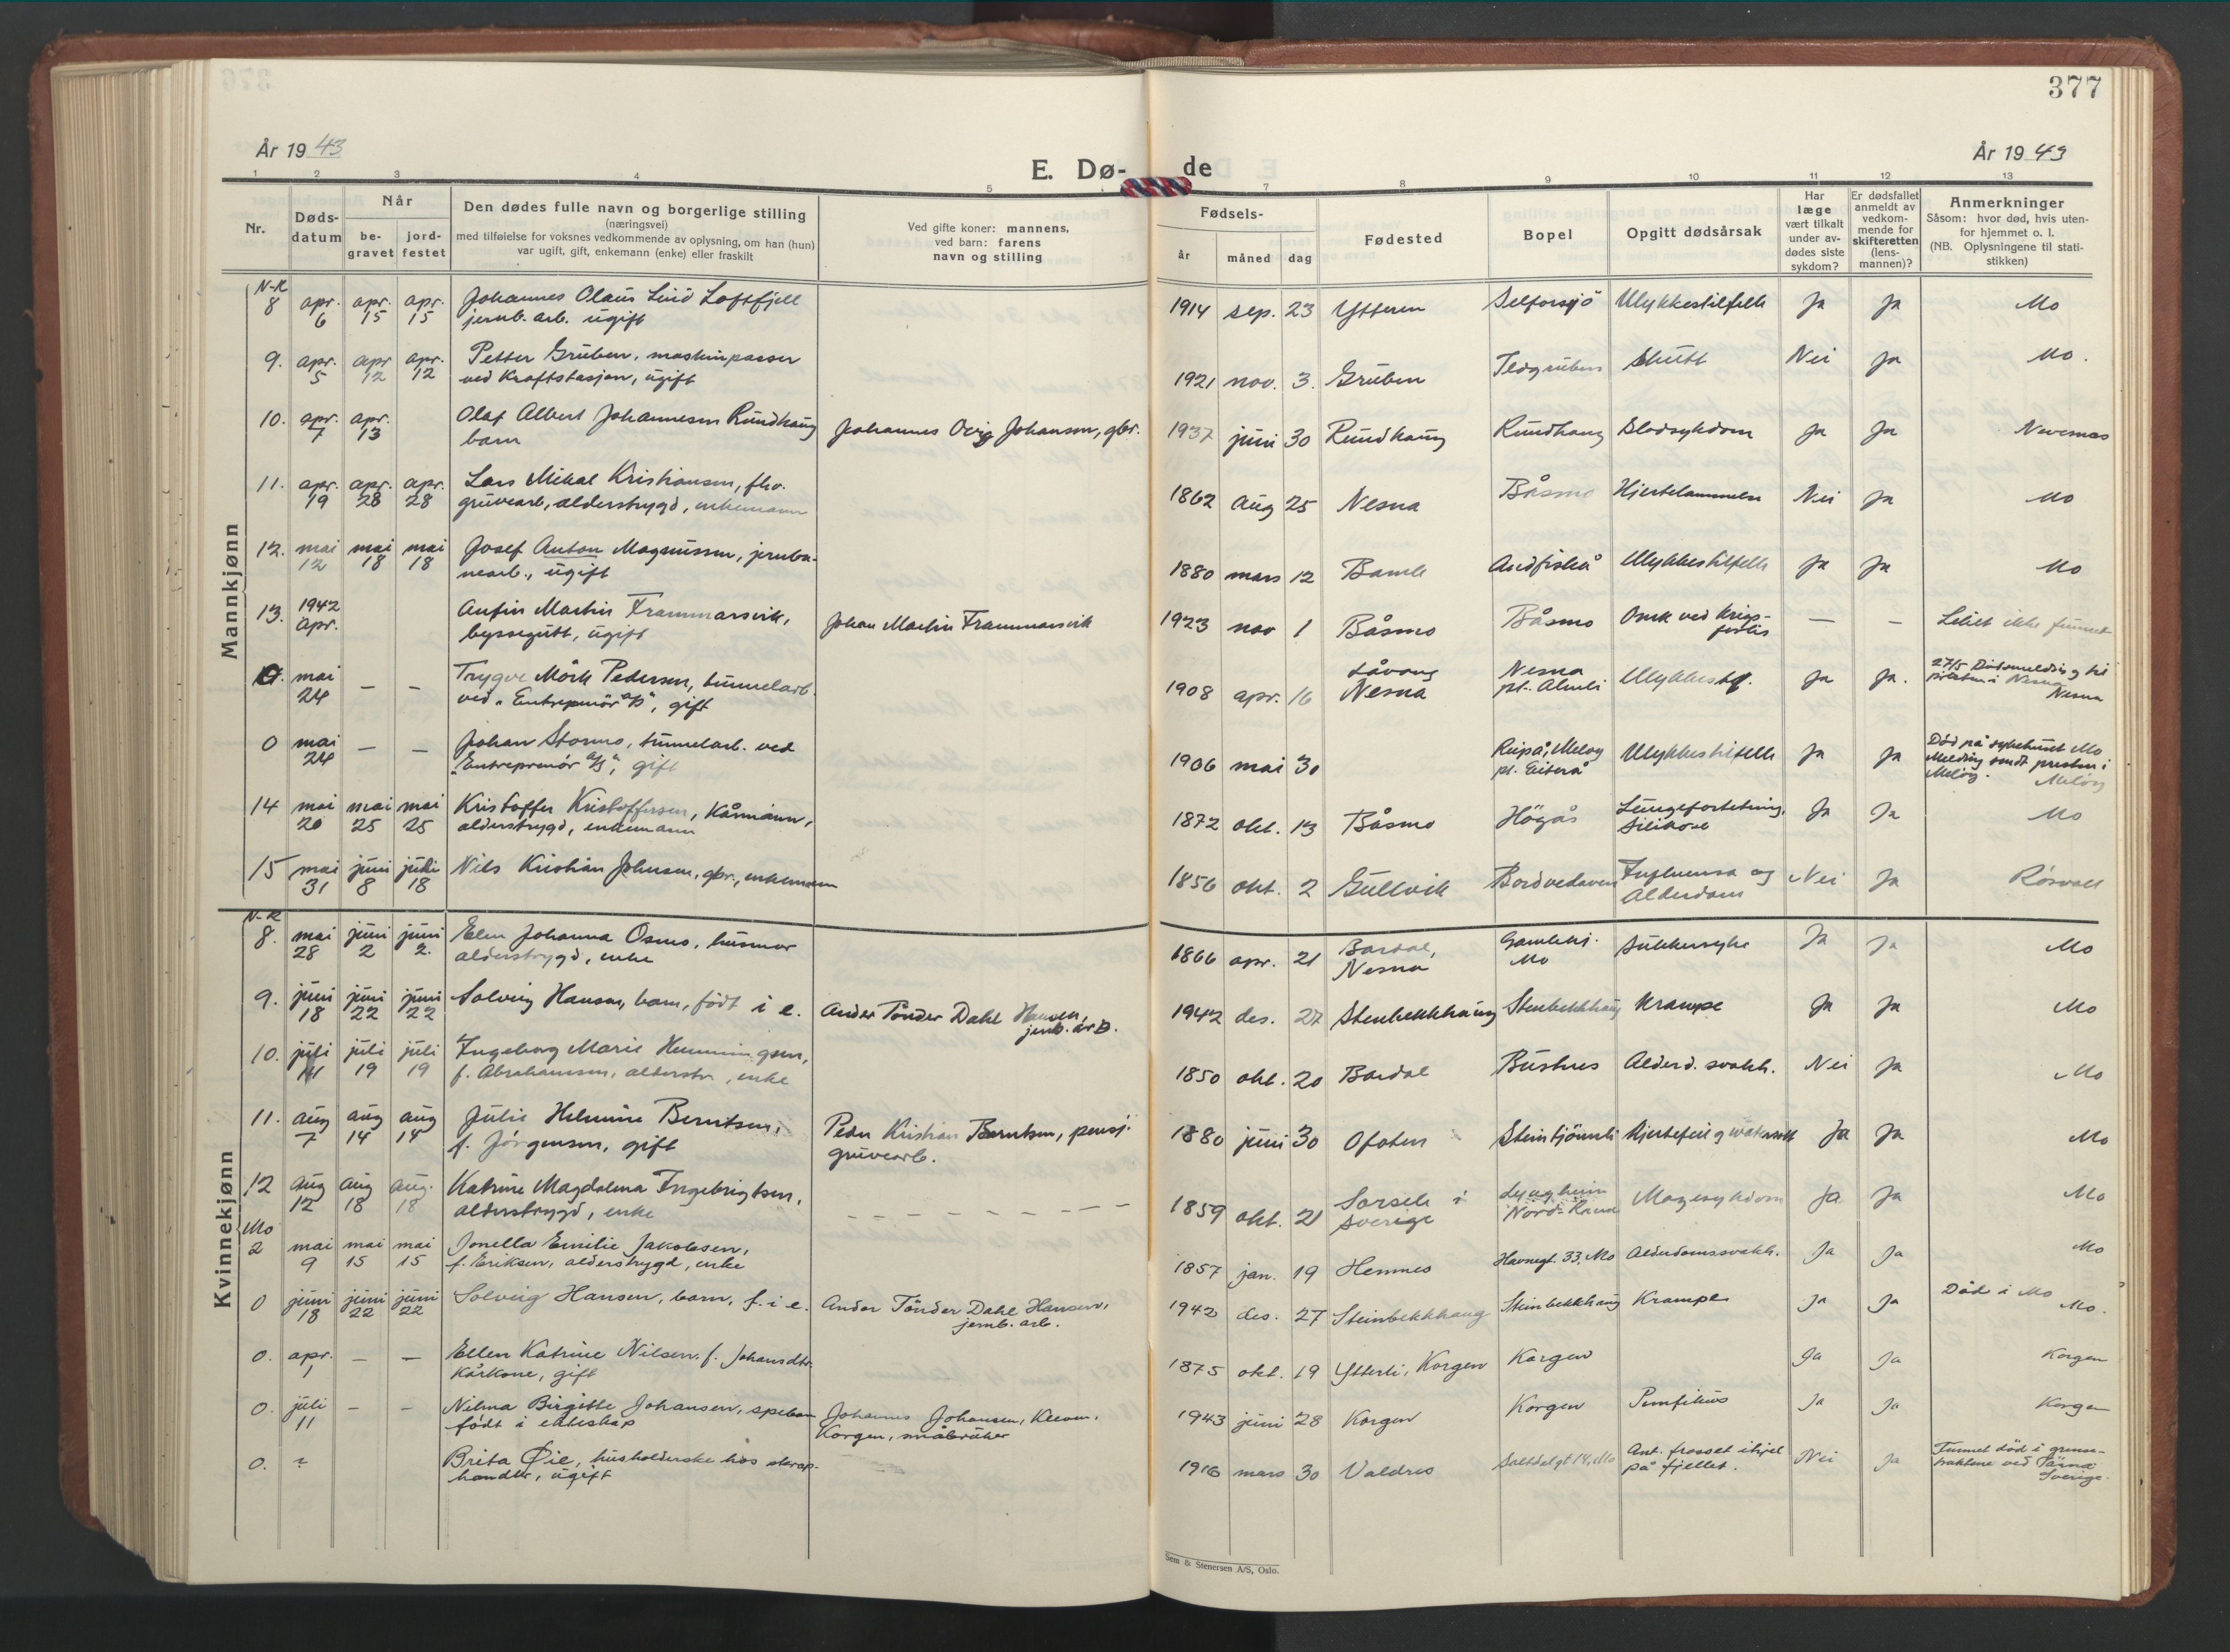 377
År 19 43
E. Dø- de
År 19 43
1 2 3 4 5 7 8 9 10 11 12 13
Nr.
Døds-
datum
Når
be-
gravet
jord-
festet
Den dødes fulle navn og borgerlige stilling
(næringsvei)
med tilføielse for voksnes vedkommende av oplysning, om han (hun)
var ugift, gift, enkemann (enke) eller fraskilt
Ved gifte koner: mannens,
ved barn: farens
navn og stilling
Fødsels-
år måned dag
Fødested
Bopel
Opgitt dødsårsak
Har
læge
vært tilkalt
under av-
dødes siste
sykdom?
Er dødsfallet
anmeldt av
vedkom-
mende for
skifteretten
(lens-
mannen)?
Anmerkninger
Såsom: hvor død, hvis uten-
for hjemmet o. l.
(NB. Oplysningene til stati-
stikken)
Mannkjønn
N-R
8 apr. apr. apr. Johannes Olaus Lund Loftfjell 1914 sep. 23 Ytteren Selforsjö Ulykkestilfelle Ja Ja Mo
6 15 15 jernb. arb. ugift
9. apr. apr apr. Petter Gruben, maskinpasser
5 12 12 ved Kraftstasjon, ugift 1921 nov. 3. Gruben Skutt Nei Ja Mo.
10. apr. apr. Olaf Albert Johannesen Rundhaug Johannes Johansen, gbr. 1937 juni 30 Rundhaug Rundhaug Blodsykdom Ja Ja Nevernes
7 13 barn
11. apr. apr. apr. Lars Mikal Kristiansen, fhv. 1862 aug 25 Nesna Båsmo Hjertelammelse Nei Ja Mo
19 28 28 gruvearb, alderstrygd, enkemann
12. mai mai mai Josef Anton Magnussen, jernba-
12 18 18 nearb., ugift 1880 mars 12 Bamle Andfiskå Ulykkestilfelle Ja Ja Mo
13. 1942 Anfin Martin Frammarsvik, Johan Martin Frammarsvik 1923 nov 1 Båsmo Båsmo Omk ved krigs- — — Liket ikke funnet
apr. byssegutt, ugift forlis
0. mai — — Trygve Mörk Pedersen, tunnelarb. 1908 apr. 16 Låvong Nesna Ulykkestilf. Ja Ja. 27/5 Dødsmelding til
24 ved "Entreprenör A/S", gift Nesna presten i Nesna
Nesna
0 mai — — Johan Stormo, tunnelarb. ved 1906 mai 30 Reipå, Meløy Ulykkestilfelle Ja Ja Död på sykehuset Mo
24 "Entreprenör A/S", gift pt. Eiterå Melding sendt presten i
Meløy. Meløy
14 mai mai mai Kristoffer Kristoffersen, kårmann, 1872 okt. 13 Båsmo Högås Lungefortetning, Ja Ja Mo
20 25 25 alderstrygd, enkemann Silikose
15 mai juni juli Nils Kristian Johnsen, gbr., enkemann 1856 okt. 2 Gullvik Influensa og Nei Ja Røsvoll
31 8 18 Alderdom
Kvinnekjønn
N-R
8. mai juni juni Elen Johanna Osmo, husmor 1866 apr. 21 Bardal, Gamlehj. Sukkersyke Ja Ja Mo
28 2 2. alderstrygd, enke Nesna Mo
9. juni juni juni Solveig Hansen, barn, födt i e. Ander Tönder Dahl Hansen 1942 des. 27 Stenbekkhaug Stenbekkhaug Krampe Ja Ja Mo
18 22 22 jernb. arb.
10. juli juli juli Ingeborg Marie Henningsen, 1850 okt. 20 Bardal Bushus Alderd. svakh. Nei Ja Mo
14 19 19 f. Abrahamsen, alderstr, enke
11. aug aug aug Julie Helmine Berntsen, Peder Kristian Berntsen, pensj. 1880 juni 30 Ofoten Steintjönnli Hjertefeil og vatersott Ja Ja Mo
7 14 14 f. Jörgensen, gift gruvearb.
12 aug aug aug. Katrine Magdalena Ingebrigtsen, 1859 okt. 21 Sorsele i Lyngheim Magesykdom Ja Ja Mo
12 18 18 alderstrygd, enke Sverige Nord-Rana
Mo
2 mai mai mai Jonella Emilie Jakobsen, 1857 jan. 19 Hemnes Havnegt. 33, Mo Alderdomssvakh. Ja Ja Mo
9 15 15 f. Eriksen, alderstrygd, enke
0 juni juni juni Solveig Hansen, barn, f. i e. Ander Tönder Dahl Hansen, 1942 des. 27 Steinbekkhaug Steinbekkhaug Krampe Ja Ja Död i Mo
18 22 22 jernb. arb. Mo.
0. apr. — — Ellen Katrine Nilsen, f. Johansdtr. 1875 okt. 19 Ytterli, Korgen Korgen Ja Ja Korgen
1 Kårkone, gift
0. juli — — Nilma Birgitte Johansen, speba​rn Johannes Johansen, 1943 juni 28 Korgen Korgen Pemfikus Ja Ja Korgen
11 födt i ekteskap Korgen, småbruker
0. ? Brita Øie, husholderske hos skrap- 1916 mars 30 Valdres Saltdalgt 14, Mo Ant. frosset ihjel Nei Ja Funnet död i grense-
handler, ugift på fjellet. traktene ved Tärna
Sverige.
Sem & Stenersen A/S, Oslo.